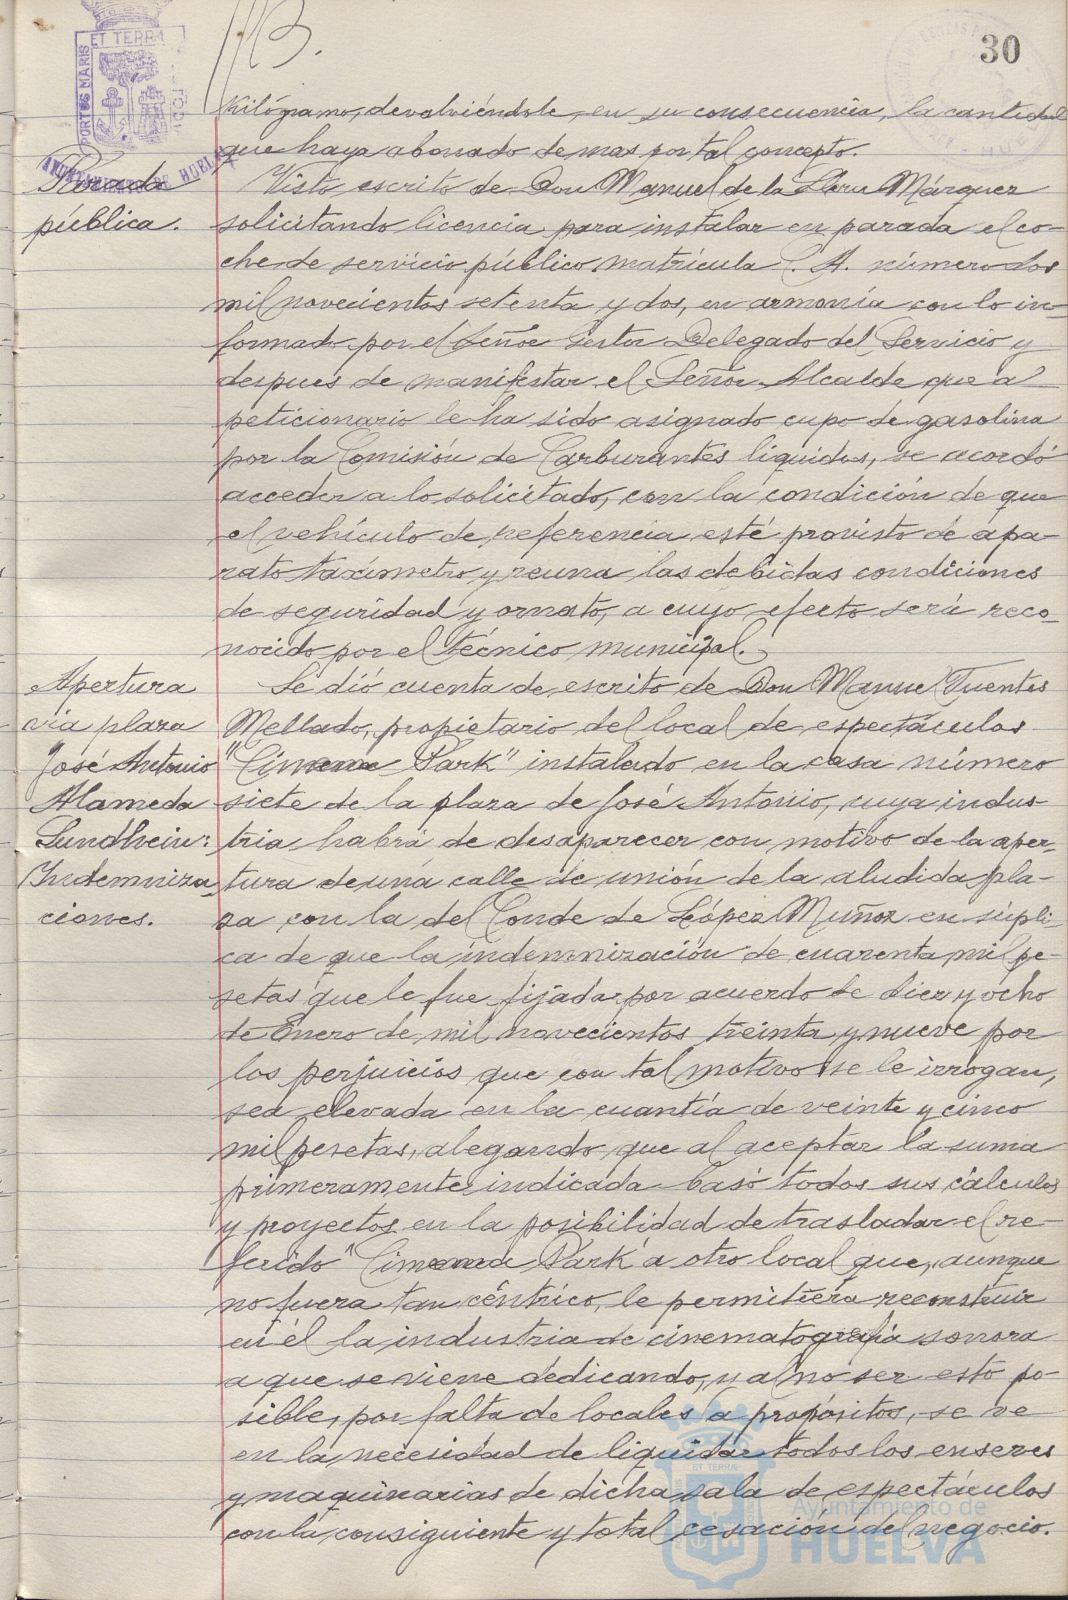 30
PORTUS MARIS ET TERRAE CUSTODIA
AYUNTAMIENTO DE HUELVA
Kilógramo, devolviéndole en su consecuencia, la cantidad
que haya abonado de mas por tal concepto.
Parada
pública.
Visto escrito de Don Manuel de la Márquez
solicitando licencia para instalar en parada el co-
che de servicio público matrícula C. A. número dos
mil novecientos setenta y dos, en armonía con lo in-
formado por el Señor Gestor Delegado del Servicio y
despues de manifestar el Señor Alcalde que al
peticionario le ha sido asignado cupo de gasolina
por la Comisión de Carburantes líquidos, se acordó
acceder a lo solicitado, con la condición de que
el vehículo de referencia esté provisto de apa-
rato taxímetro y reuna las debidas condiciones
de seguridad y ornato, a cuyo efecto será reco-
nocido por el técnico municipal.
Apertura
via plaza
"José Antonio
Alameda
Sundheim:
Indemniza-
ciones.
Se dió cuenta de escrito de Don Manuel Fuentes
Mellado, propietario del local de espectáculos
"Cinema Park" instalado en la casa número
siete de la plaza de José Antonio, cuya indus-
tria habrá de desaparecer con motivo de la aper-
tura de una calle de unión de la aludida pla-
za con la del Conde de López Muñoz en súpli-
ca de que la indemnización de cuarenta mil pe-
setas que le fue fijada por acuerdo de diez y ocho
de Enero de mil novecientos treinta y nueve por
los perjuicios que con tal motivo se le irrogan,
sea elevada en la cuantía de veinte y cinco
mil pesetas, alegando que al aceptar la suma
primeramente indicada basó todos sus cálculos
y proyectos en la posibilidad de trasladar el re-
ferido "Cinema Park" a otro local que, aunque
no fuera tan céntrico, le permitiera reconstruir
en él la industria de cinematografía sonora
a que se viene dedicando, y al no ser esto po-
sible, por falta de locales a propósitos, se ve
en la necesidad de liquidar todos los enseres
y maquinarias de dicha sala de espectáculos
con la consiguiente y total cesación del negocio.
Ayuntamiento de
HUELVA